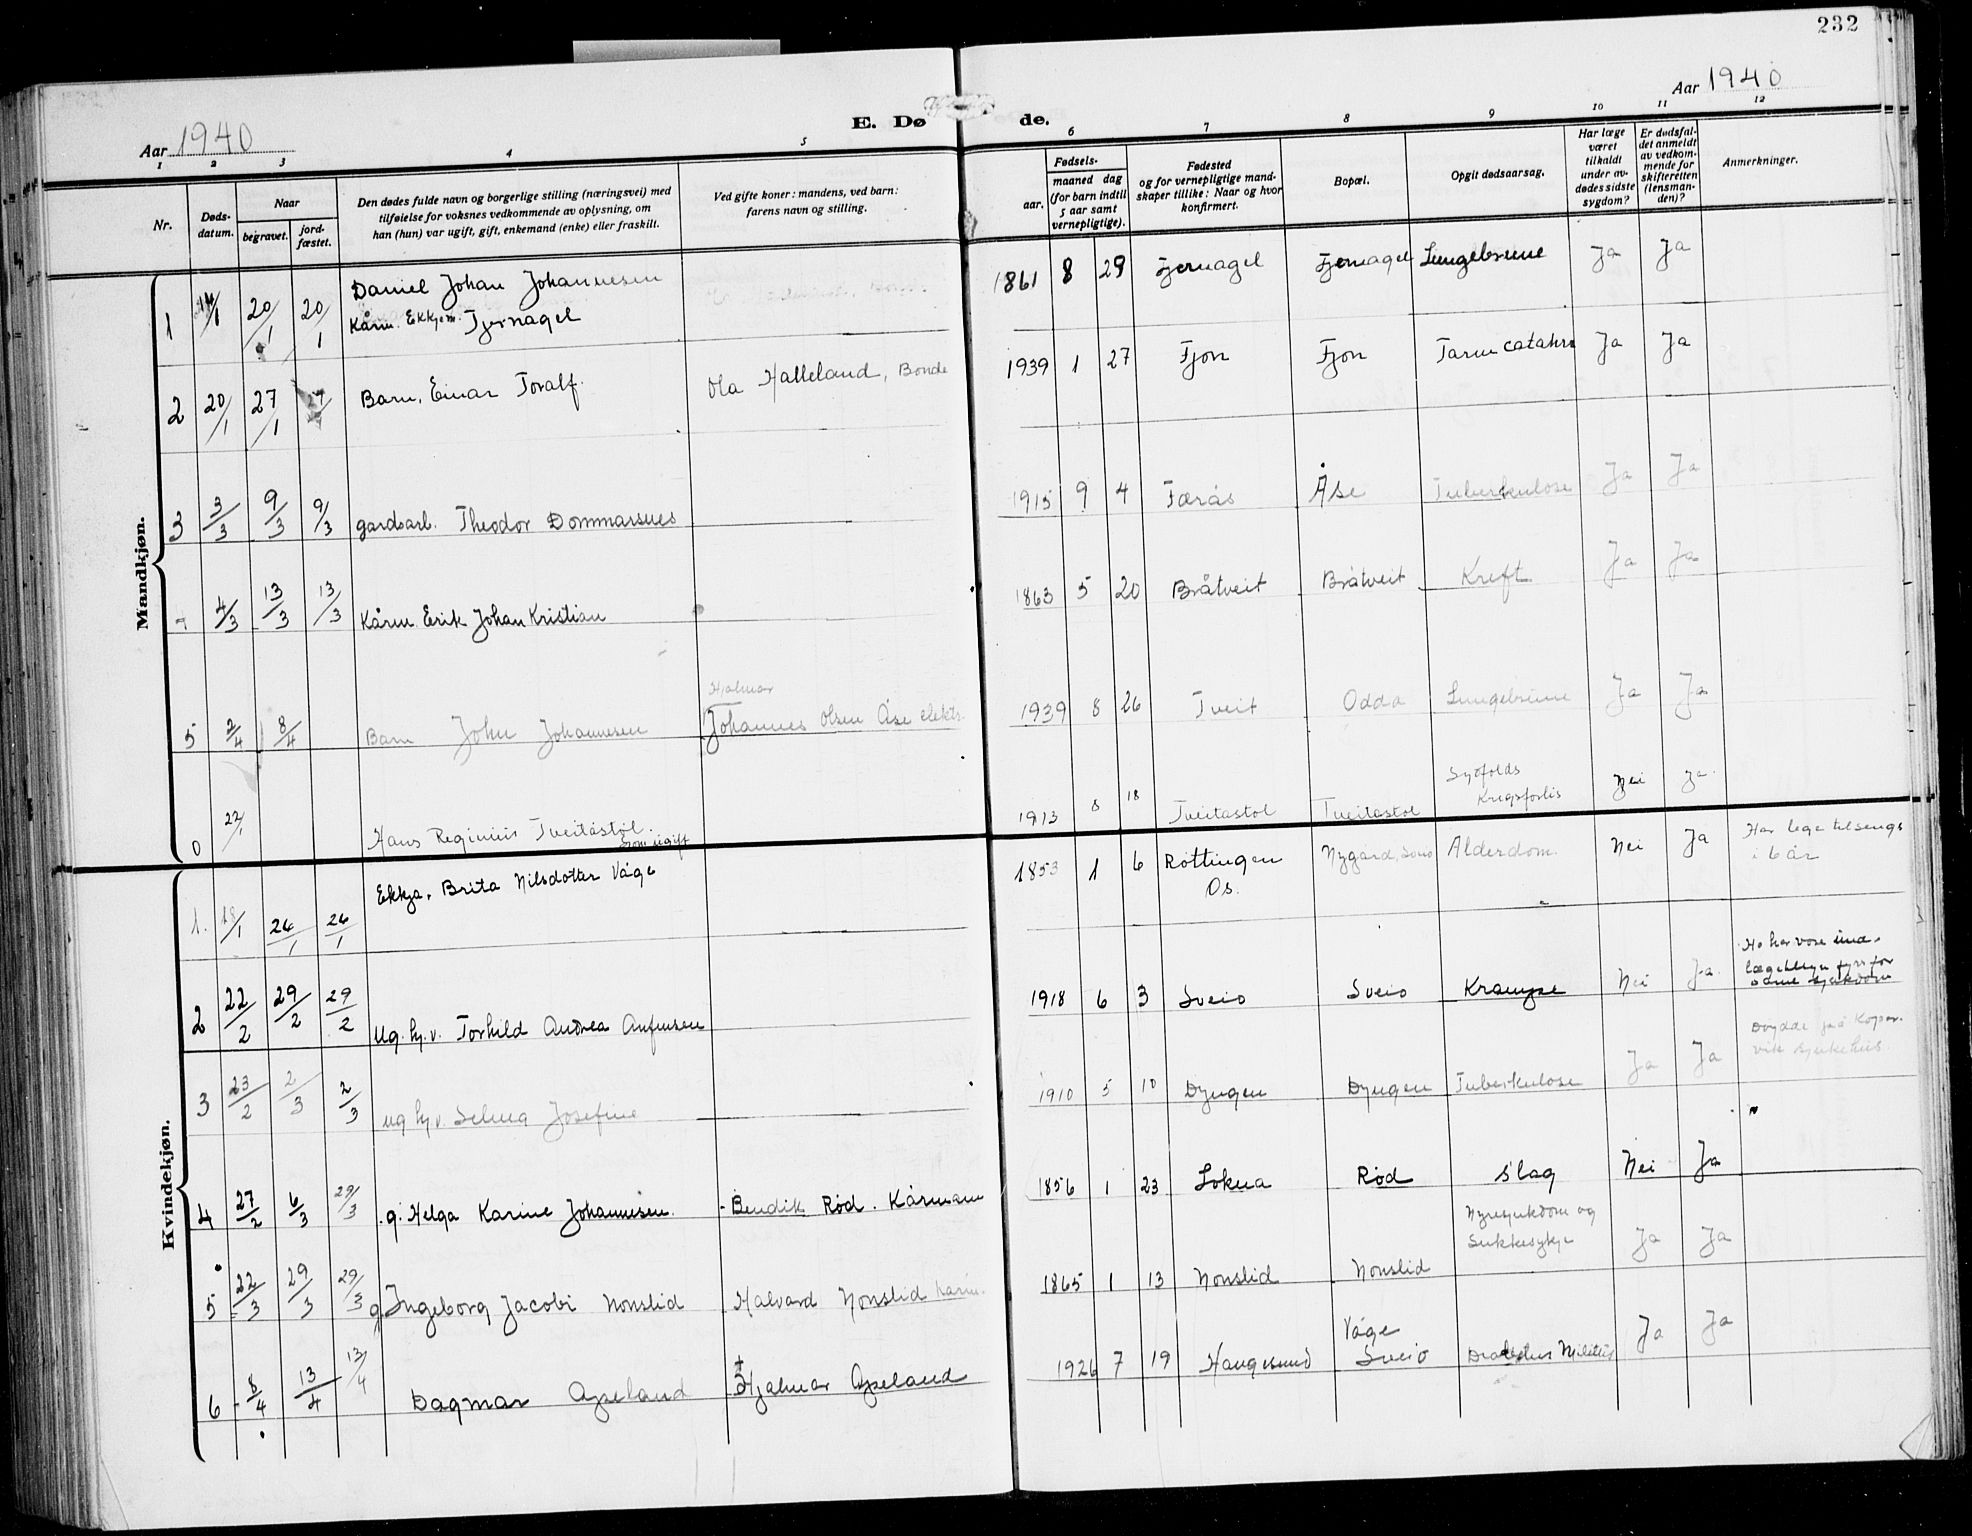 232
Aar 1940
Aar 1940
E. Dø de.
1 2 3 4 5 6 7 8 9 10 11 12
Nr.
Døds-
datum.
Naar
begravet.
jord-
fæstet.
Den dødes fulde navn og borgerlige stilling (næringsvei) med
tilføielse for voksnes vedkommende av oplysning, om
han (hun) var ugift, gift, enkemand (enke) eller fraskilt.
Ved gifte koner: mandens, ved barn:
farens navn og stilling.
Fødsels-
aar.
maaned dag
(for barn indtil
5 aar samt
vernepligtige).
Fødested
og for vernepligtige mand-
skaper tillike: Naar og hvor
konfirmert.
Bopæl.
Opgit dødsaarsag.
Har læge
været
tilkaldt
under av-
dødes sidste
sygdom?
Er dødsfal-
det anmeldt
av vedkom-
mende for
skifteretten
(lensman-
den)?
Anmerkninger.
Mandkjøn.
Daniel Johan Johannesen
1 20/1 20/1 Kårm. Ekkjem. Tjernagel 1861 8 29 Tjernagel Tjernagel Lungebrene Ja Ja
2 20/1 27/1 Barn, Einar Toralf. Ola Halleland, Bonde 1939 1 27 Fjon Fjon Tarmcatahr Ja Ja
3 3/3 9/3 9/3 gardsarb. Theodor Dommarsnes 1915 9 4 Færås Åse Tuberkulose Ja Ja
4 4/3 13/3 13/3 Kårm Erik Johan Kristian 1863 5 20 Bråtveit Bråtveit Kreft Ja Ja
Hjalmar
5 2/4 8/4 Barn John Johannesen Johannes Olsen Åse elektr. 1939 8 26 Tveit Odda Lungebrene Ja Ja
0 22/1 Hans Reginius Tveitastøl. 1913 8 18 Tveitastøl Tveitastøl Krigsforlis Nei Ja
ugift
Kvindekjøn.
1. 18/1 26/1 26/1 Ekkja. Brita Nilsdotter Våge 1853 1 6 Røttingen Os. Nygård, Sveio Alderdom. Nei Ja Har lege tilsengs
i 6 år
2 22/2 29/2 29/2 Ug. hj. v. Torhild Andrea Anfinsen 1918 6 3 Sveio Sveio Krampe Nei Ja Ho har vore und.
lægehjelp fyrr for
same sjukdom
3 23/2 2/3 2/3 ug hj v. Selma Josefine 1910 5 10 Dyngen Dyngen Tuberkulose Ja Ja Døydde på Kopar-
vik sjukehus.
4 27/2 6/3 29/3 g. Helga Karine Johannesen. Bendik Rød. Kårmann 1856 1 23 Lokna Rød Slag Nei Ja
Nyresjukdom og
Sukkersykje
5 22/3 29/3 29/3 g. Ingeborg Jacobi Nonslid Halvard Nonslid kårm. 1865 1 13 Nonslid Nonslid Ja Ja
Våge
6 8/4 13/4 13/4 Dagmar Apeland Hjalmar Apeland 1926 7 19 Haugesund Sveio Diabetus Militus Ja Ja